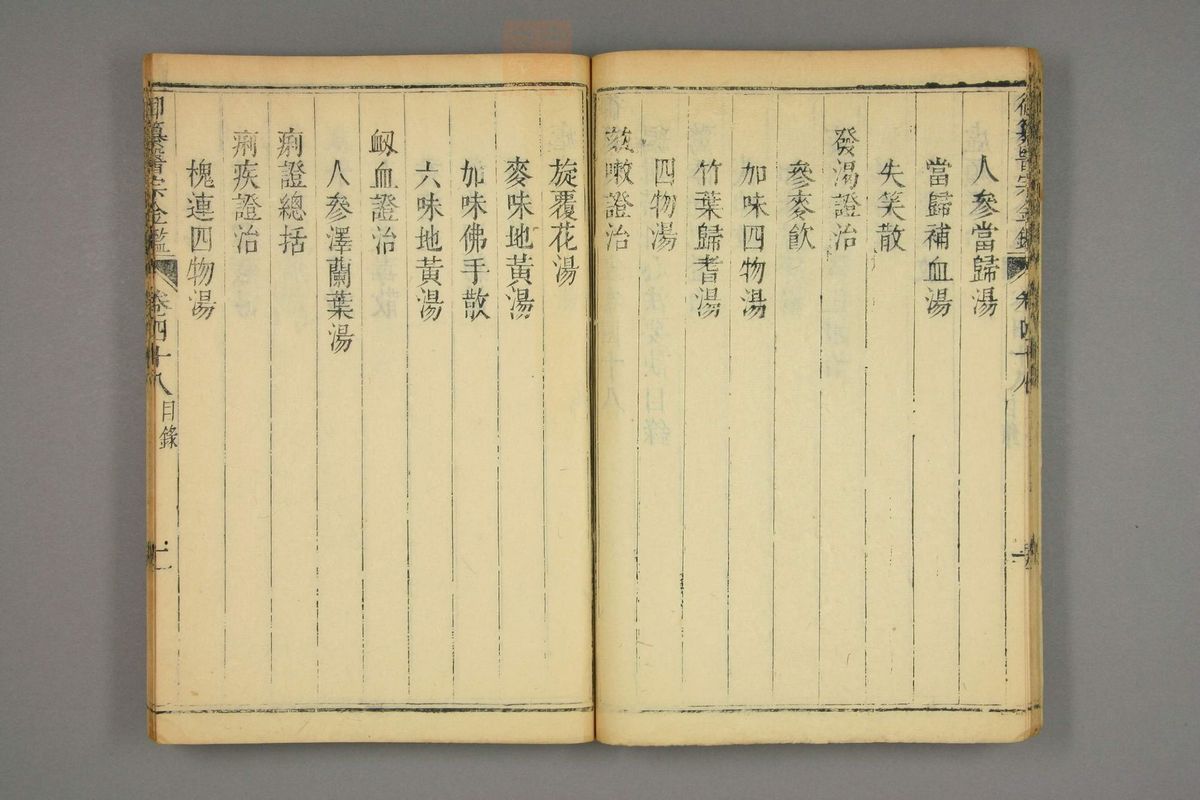 人參當歸湯
當歸補血湯
失笑散
發渴證治
參麥飲
加味四物湯
竹葉歸耆湯
四物湯
欬嗽證治
旋覆花湯
麥味地黃湯
加味佛手散
六味地黃湯
衂血證治
人參澤蘭葉湯
痢證總括
痢疾證治
槐連四物湯
御纂醫宗金鑑
卷四十八
目錄